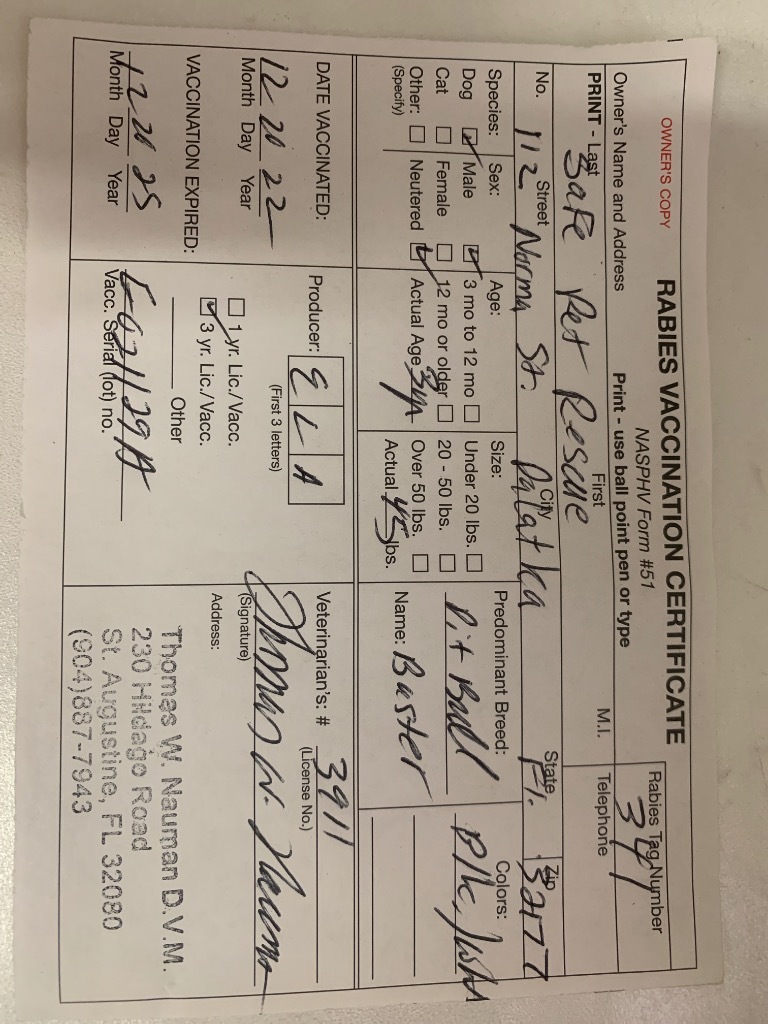 OWNER'S COPY
RABIES VACCINATION CERTIFICATE
NASPHV Form #51
Rabies Tag Number
341
Owner's Name and Address
Print - use ball point pen or type
PRINT - Last First M.I. Telephone
Safe Pet Rescue
No. Street City State Zip
112 Norma St. Palatka Fl. 32177
Species: Sex: Age: Size: Predominant Breed: Colors:
Dog Male 3 mo to 12 mo Under 20 lbs. Pit Bull Blk/Wht
Cat Female 12 mo or older 20 - 50 lbs.
Other: Neutered Actual Age 3yr Over 50 lbs. Name: Buster
(Specify) Actual 45 lbs.
DATE VACCINATED:
12 20 22
Month Day Year
VACCINATION EXPIRED:
12 20 25
Month Day Year
Producer: E L A
(First 3 letters)
1 yr. Lic./Vacc.
3 yr. Lic./Vacc.
Other
Vacc. Serial (lot) no.
Veterinarian's: # 3911
(License No.)
Thomas W. Nauman
(Signature)
Address:
Thomas W. Nauman D.V.M.
230 Hildago Road
St. Augustine, FL 32080
(904)887-7943